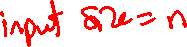 input size = n